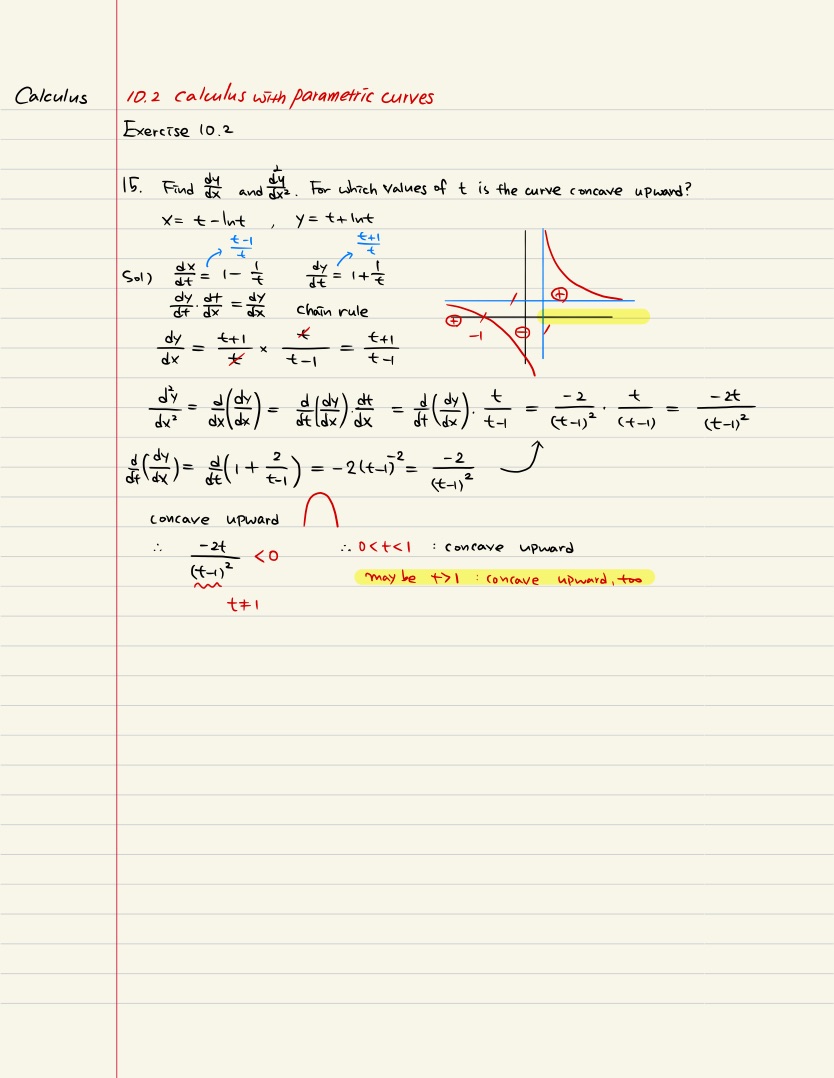 Calculus 10.2 Calculus with parametric curves
Exercise 10.2
15. Find dy/dx and d²y/dx². For which values of t is the curve concave upward?
x = t - ln t , y = t + ln t
t-1/t t+1/t
Sol) dx/dt = 1 - 1/t dy/dt = 1 + 1/t
dy/dt · dt/dx = dy/dx chain rule
⊕ ⊕ -1 ⊖
dy/dx = t+1/t × t/t-1 = t+1/t-1
d²y/dx² = d/dx(dy/dx) = d/dt(dy/dx) · dt/dx = d/dt(dy/dx) · t/t-1 = -2/(t-1)² · t/(t-1) = -2t/(t-1)²
d/dt(dy/dx) = d/dt(1 + 2/t-1) = -2(t-1)⁻² = -2/(t-1)²
concave upward
∴ -2t/(t-1)² < 0 ∴ 0<t<1 : concave upward
may be t>1 : concave upward, too
t≠1